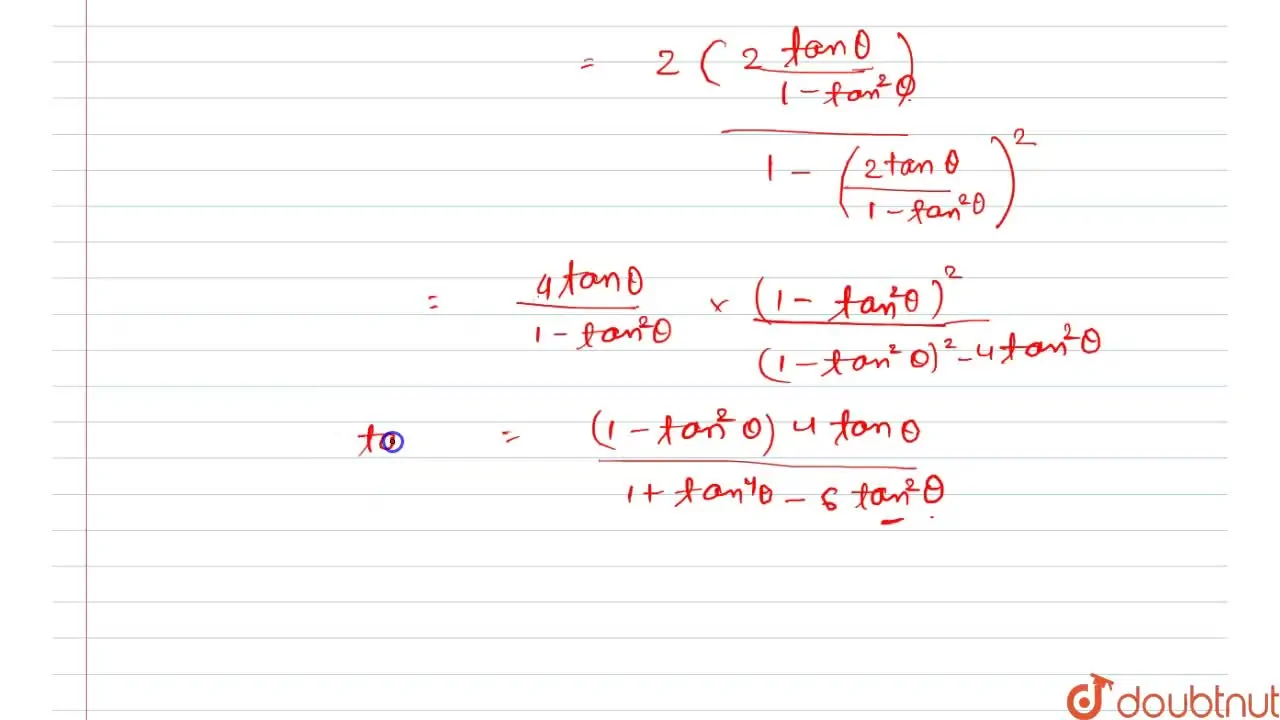 = 2 ( 2 tan θ
1 - tan² θ )
1 - ( 2 tan θ )²
1 - tan² θ
= 4 tan θ × (1 - tan² θ)²
1 - tan² θ (1 - tan² θ)² - 4 tan² θ
ta = (1 - tan² θ) 4 tan θ
1 + tan⁴ θ - 6 tan² θ
doubtnut